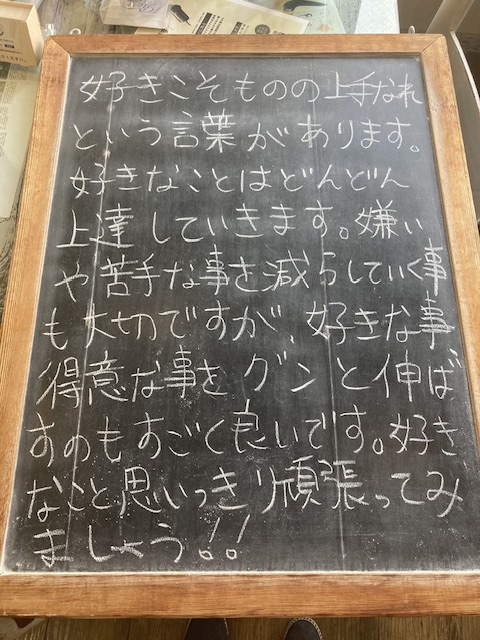 好きこそものの上手なれ
という言葉があります。
好きなことはどんどん
上達していきます。嫌い
や苦手な事を減らしていく事
も大切ですが、好きな事
得意な事をグンと伸ば
すのもすごく良いです。好き
なこと思いっきり頑張ってみ
ましょう!!